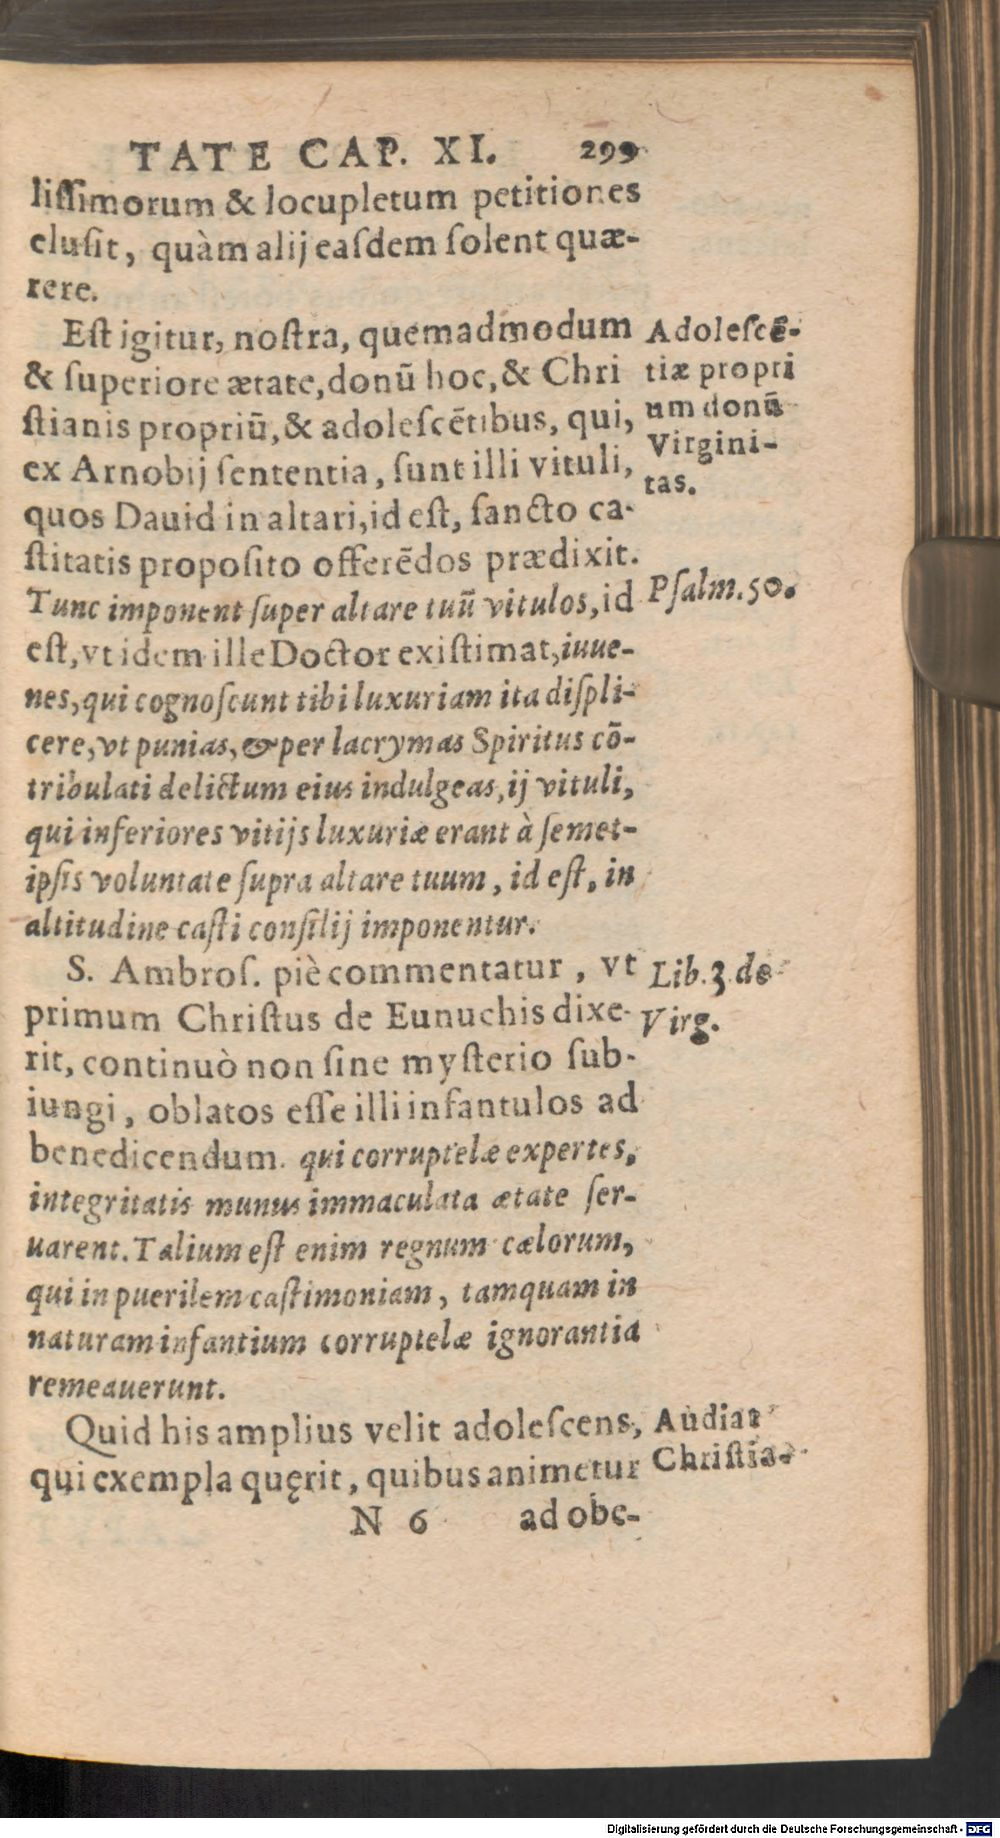 TATE CAP. XI. 299
liſſimorum & locupletum petitiones
eluſit, quàm alij eaſdem ſolent quæ-
rere.
Eſt igitur, noſtra, quemadmodum
& ſuperiore ætate, donũ hoc, & Chri
ſtianis propriũ, & adoleſcẽtibus, qui,
ex Arnobij ſententia, ſunt illi vituli,
quos Dauid in altari, id eſt, ſancto ca-
ſtitatis propoſito offerẽdos prædixit.
Tunc imponent ſuper altare tuũ vitulos, id
eſt, vt idem ille Doctor exiſtimat, iuue-
nes, qui cognoſcunt tibi luxuriam ita diſpli-
cere, vt punias, & per lacrymas Spiritus cõ-
tribulati delictum eius indulgeas, ij vituli,
qui inferiores vitijs luxuriæ erant à ſemet-
ipſis voluntate ſupra altare tuum, id eſt, in
altitudine caſti conſilij imponentur.
S. Ambroſ. piè commentatur, vt
primum Chriſtus de Eunuchis dixe-
rit, continuò non ſine myſterio ſub-
iungi, oblatos eſſe illi infantulos ad
benedicendum. qui corruptelæ expertes,
integritatis munus immaculata ætate ſer-
uarent. Talium eſt enim regnum cælorum,
qui in puerilem caſtimoniam, tamquam in
naturam infantium corruptelæ ignorantia
remeauerunt.
Quid his amplius velit adoleſcens,
qui exempla quęrit, quibus animetur
N 6 ad obe-
Adoleſcẽ-
tiæ propri
um donũ
Virgini-
tas.
Pſalm. 50.
Lib. 3. de
Virg.
Audiat
Chriſtia-
Digitalisierung gefördert durch die Deutsche Forschungsgemeinschaft - DFG